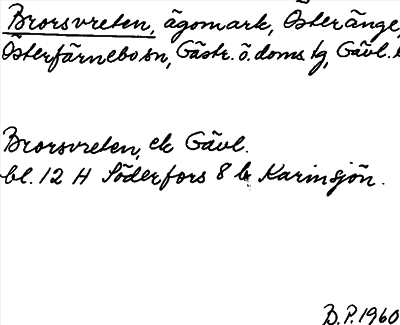 Brorsvreten, ägomark, Österänge,
Österfärnebo sn, Gästr. ö. doms tg, Gävl.
Brorsvreten, ek Gävl.
bl. 12 H Söderfors 8 b Karinsjön.
B.P. 1960